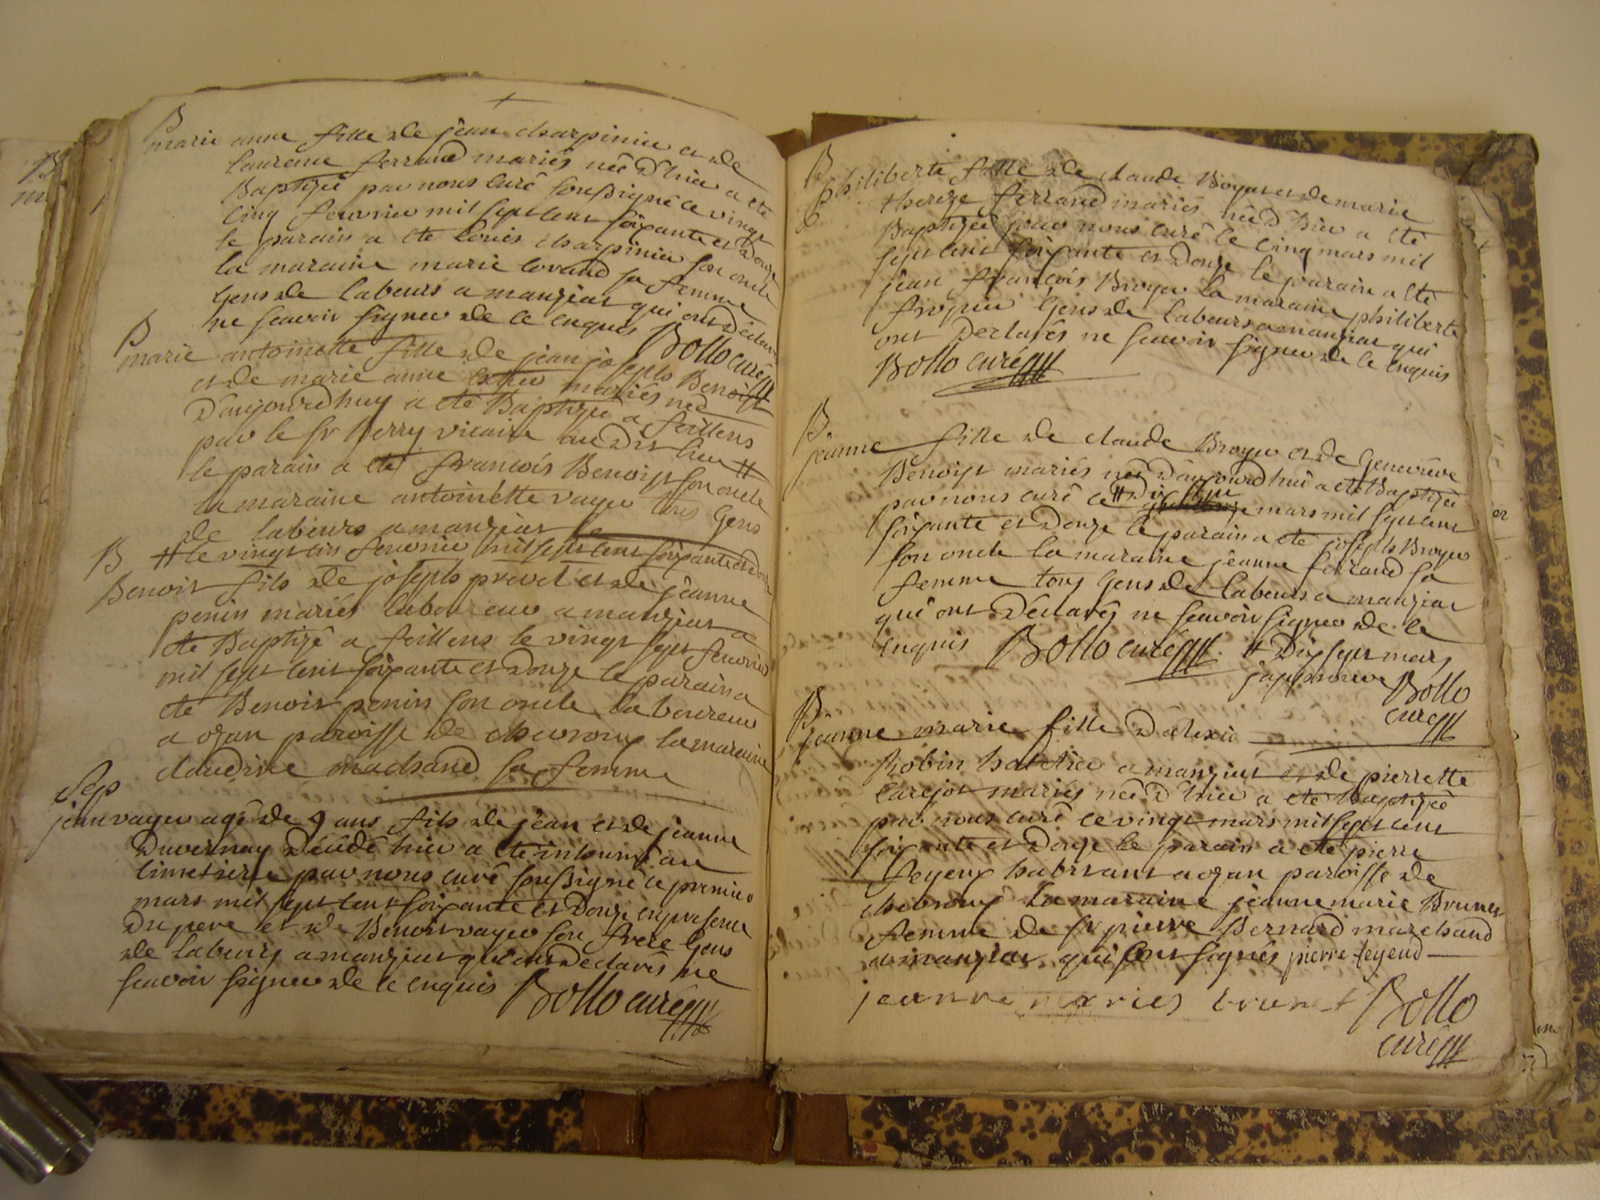 B
marie anne fille de jean charpinin et de
laurence ferrand mariés née d'hier a eté
Baptizée par nous curé soussigné ce vingt
cinq feuvrier mil sept cent soixante et douze
le parain a eté louis charpinin son oncle
la maraine marie sa femme
gens de labeurs a manziat qui ont declaré
ne scavoir signer de ce enquis Bollo curé
B
marie antoinette fille de jean joseph Benoist
et de marie anne mariés née
d'aujourdhuy a eté Baptizée a feillens
par le sr ferry vicaire au dit lieu #
le parain a eté francois Benoist son oncle
la maraine antoinette vayer tous gens
de labeurs a manziat
B # le vingt six feuvrier mil sept cent soixante et douze
Benoit fils de joseph prevel et de jeanne
penin mariés laboureur a manziat a
eté Baptizé a feillens le vingt sept feuvrier
mil sept cent soixante et douze le parain a
eté Benoit penin son oncle laboureur
a ozan paroisse de chevroux la maraine
claudine machand sa femme
Sep
jean vayer agé de 9 ans fils de jean et de jeanne
Duvernay décédé hier a eté inhumé au
cimetiere par nous curé soussigné ce premier
mars mil sept cent soixante et douze en presence
du pere et de Benoit vayer son frere gens
de labeurs a manziat qui ont déclarés ne
scavoir signer de ce enquis Bollo curé
B
philiberte fille de claude Boyat et de marie
thereze ferrand mariés née d'hier a eté
Baptizée par nous curé le cinq mars mil
sept cent soixante et douze le parain a eté
jean françois Broyer la maraine philiberte
gens de labeurs a manziat qui
ont declarés ne scavoir signer de ce enquis
Bollo curé
B
jeanne fille de claude Broyer et de Genevieve
Benoist mariés née d'aujourdhui a eté Baptizée
par nous curé ce # Dix sept mars mil sept cent
soixante et douze le parain a eté joseph Broyer
son oncle la maraine jeanne ferrand sa
femme tous gens de labeurs a manziat
qui ont déclarés ne scavoir signer de ce
enquis Bollo curé # Dix sept mars
j'approuve Bollo
curé
B
jeanne marie fille d'alexis
Robin a manziat et de pierrette
carejot mariés née d'hier a eté Baptizée
par nous curé ce vingt mars mil sept cent
soixante et douze le parain a eté pierre
feyeux habitant a ozan paroisse de
chevroux la maraine jeanne marie Brunet
femme de sr pierre Bernard marchand
a manziat qui sont signés pierre feyeud
jeanne maries brunet Bollo
curé